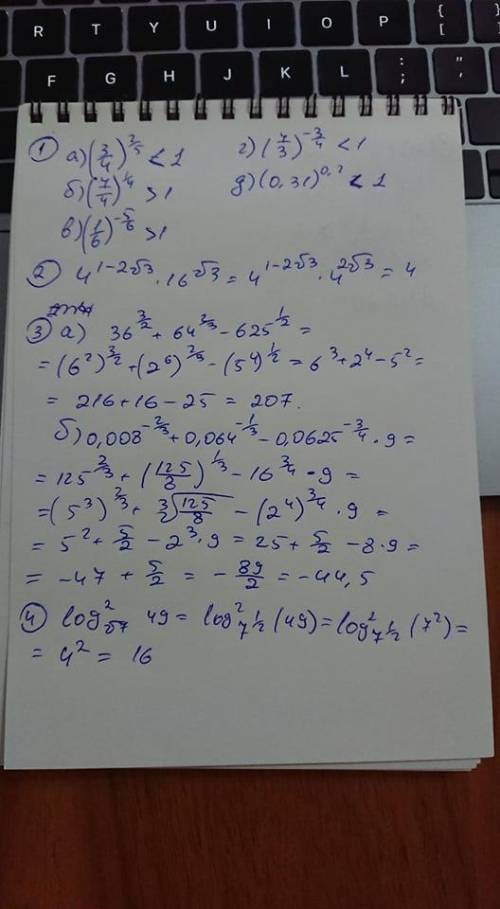 R T Y U I O P { [
F G H J K L : ; " '
① а) (3/4)^(2/5) < 1 г) (7/3)^(-3/4) < 1
б) (7/4)^(1/4) > 1 д) (0,31)^(0,7) < 1
в) (1/6)^(-5/6) > 1
② 4^(1-2√3) · 16^(√3) = 4^(1-2√3) · 4^(2√3) = 4
③ а) 36^(3/2) + 64^(2/3) - 625^(1/2) =
= (6²)^(3/2) + (2⁶)^(2/3) - (5⁴)^(1/2) = 6³ + 2⁴ - 5² =
= 216 + 16 - 25 = 207.
б) 0,008^(-2/3) + 0,064^(-1/3) - 0,0625^(-3/4) · 9 =
= 125^(2/3) + (125/8)^(1/3) - 16^(3/4) · 9 =
= (5³)^(2/3) + ∛(125/8) - (2⁴)^(3/4) · 9 =
= 5² + 5/2 - 2³ · 9 = 25 + 5/2 - 8 · 9 =
= -47 + 5/2 = - 89/2 = -44,5
④ log²_√7 49 = log²_7^(1/2) (49) = log²_7^(1/2) (7²) =
= 4² = 16